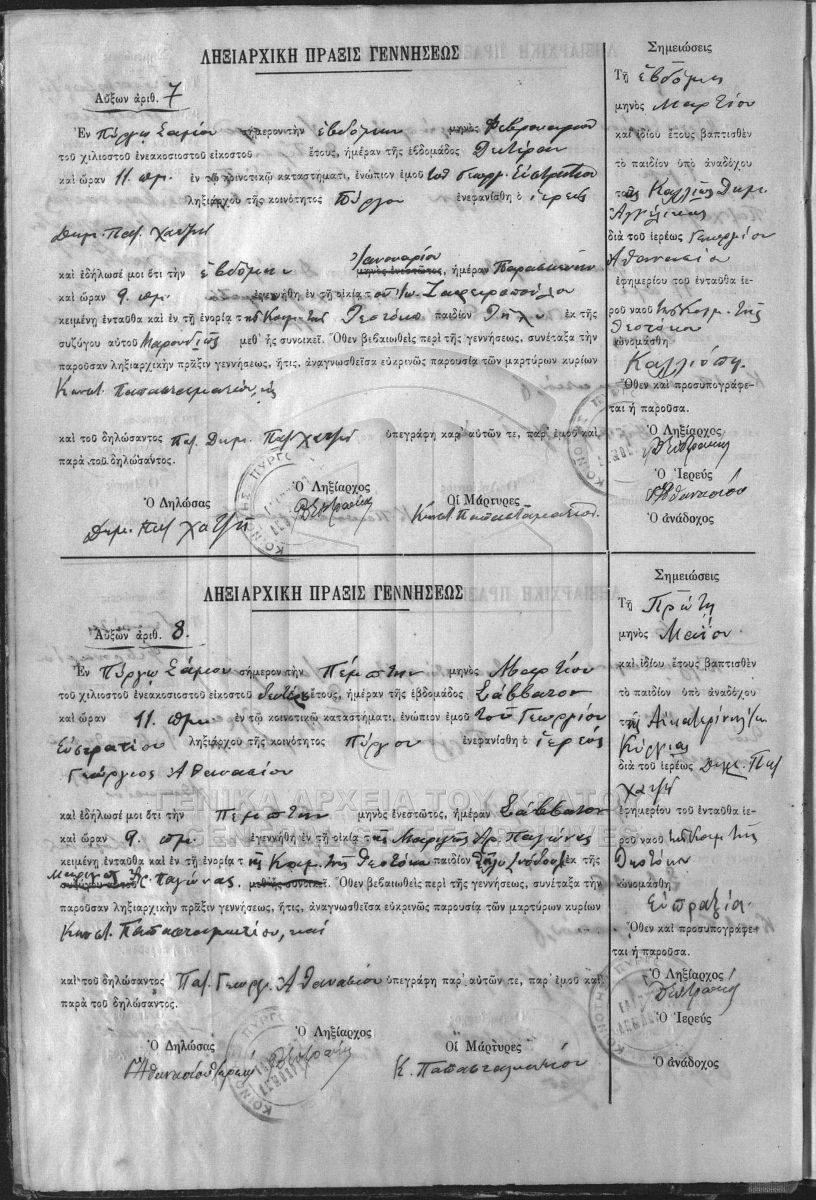 ΛΗΞΙΑΡΧΙΚΗ ΠΡΑΞΙΣ ΓΕΝΝΗΣΕΩΣ
Αὔξων ἀριθ. 7
Ἐν Πύργῳ Σάμου σήμερον τὴν ἑβδόμην μηνὸς Φεβρουαρίου
τοῦ χιλιοστοῦ ἐνεακοσιοστοῦ εἰκοστοῦ ἔτους, ἡμέραν τῆς ἑβδομάδος Δευτέραν
καὶ ὥραν 11 πμ. ἐν τῷ κοινοτικῷ καταστήματι, ἐνώπιον ἐμοῦ τοῦ Γεωργ. Εὐστρατίου
ληξιάρχου τῆς κοινότητος Πύργου ἐνεφανίσθη ὁ ἱερεὺς
Δημ. Παπ. Χατζῆς
καὶ ἐδήλωσέ μοι ὅτι τὴν ἑβδόμην Ἰανουαρίου μηνὸς ἐνεστῶτος, ἡμέραν Παρασκευὴν
καὶ ὥραν 9 πμ. ἐγεννήθη ἐν τῇ οἰκίᾳ τοῦ
κειμένῃ ἐνταῦθα καὶ ἐν τῇ ἐνορίᾳ τῆς Κοιμ. τῆς Θεοτόκου παιδίον θῆλυ ἐκ τῆς
συζύγου αὐτοῦ Μαρουδιᾶς μεθ' ἧς συνοικεῖ. Ὅθεν βεβαιωθεὶς περὶ τῆς γεννήσεως, συνέταξα τὴν
παροῦσαν ληξιαρχικὴν πρᾶξιν γεννήσεως, ἥτις, ἀναγνωσθεῖσα εὐκρινῶς παρουσίᾳ τῶν μαρτύρων κυρίων
Κωνστ. Παπασταματίου
καὶ τοῦ δηλώσαντος Παπ. Δημ. Παπ. Χατζῆ ὑπεγράφη παρ' αὐτῶν τε, παρ' ἐμοῦ καὶ
παρὰ τοῦ δηλώσαντος.
Ὁ Δηλώσας
Ὁ Ληξίαρχος
Οἱ Μάρτυρες
Δημ. Παπ. Χατζῆ
Κωνστ. Παπασταματίου
Σημειώσεις
Τῇ ἑβδόμῃ
μηνὸς Μαρτίου
καὶ ἰδίου ἔτους βαπτισθὲν
τὸ παιδίον ὑπὸ ἀναδόχου
τῆς
διὰ τοῦ ἱερέως Γεωργίου
Ἀθανασίου
ἐφημερίου τοῦ ἐνταῦθα ἱε-
ροῦ ναοῦ τῆς Κοιμ. τῆς
Θεοτόκου
ὠνομάσθη
Καλλιόπη.
Ὅθεν καὶ προσυπογράφε-
ται ἡ παροῦσα.
Ὁ Ληξίαρχος
Ὁ Ἱερεύς
Ὁ ἀνάδοχος
ΛΗΞΙΑΡΧΙΚΗ ΠΡΑΞΙΣ ΓΕΝΝΗΣΕΩΣ
Αὔξων ἀριθ. 8.
Ἐν Πύργῳ Σάμου σήμερον τὴν Πέμπτην μηνὸς Μαρτίου
τοῦ χιλιοστοῦ ἐνεακοσιοστοῦ εἰκοστοῦ δευτέρου ἔτους, ἡμέραν τῆς ἑβδομάδος Σάββατον
καὶ ὥραν 11 πμ. ἐν τῷ κοινοτικῷ καταστήματι, ἐνώπιον ἐμοῦ τοῦ Γεωργίου
Εὐστρατίου ληξιάρχου τῆς κοινότητος Πύργου ἐνεφανίσθη ὁ ἱερεὺς
Γεώργιος Ἀθανασίου
ΓΕΝΙΚΑ ΑΡΧΕΙΑ ΤΟΥ ΚΡΑΤΟΥΣ
καὶ ἐδήλωσέ μοι ὅτι τὴν πέμπτην μηνὸς ἐνεστῶτος, ἡμέραν Σάββατον
καὶ ὥραν 9. πμ. ἐγεννήθη ἐν τῇ οἰκίᾳ τῆς
κειμένῃ ἐνταῦθα καὶ ἐν τῇ ἐνορίᾳ τῆς Κοιμ. τῆς Θεοτόκου παιδίον θῆλυ ἐκ τῆς
συζύγου αὐτοῦ μεθ' ἧς συνοικεῖ. Ὅθεν βεβαιωθεὶς περὶ τῆς γεννήσεως, συνέταξα τὴν
παροῦσαν ληξιαρχικὴν πρᾶξιν γεννήσεως, ἥτις, ἀναγνωσθεῖσα εὐκρινῶς παρουσίᾳ τῶν μαρτύρων κυρίων
Κωνστ. Παπασταματίου, καὶ
καὶ τοῦ δηλώσαντος Παπ. Γεωργ. Ἀθανασίου ὑπεγράφη παρ' αὐτῶν τε, παρ' ἐμοῦ καὶ
παρὰ τοῦ δηλώσαντος.
Ὁ Δηλώσας
Ὁ Ληξίαρχος
Οἱ Μάρτυρες
Κ. Παπασταματίου
Σημειώσεις
Τῇ Πρώτῃ
μηνὸς Μαΐου
καὶ ἰδίου ἔτους βαπτισθὲν
τὸ παιδίον ὑπὸ ἀναδόχου
τῆς Αἰκατερίνης
διὰ τοῦ ἱερέως Δημ. Παπ
Χατζῆ
ἐφημερίου τοῦ ἐνταῦθα ἱε-
ροῦ ναοῦ τῆς Κοιμ. τῆς
Θεοτόκου
ὠνομάσθη
Εὐπραξία.
Ὅθεν καὶ προσυπογράφε-
ται ἡ παροῦσα.
Ὁ Ληξίαρχος
Ὁ Ἱερεύς
Ὁ ἀνάδοχος